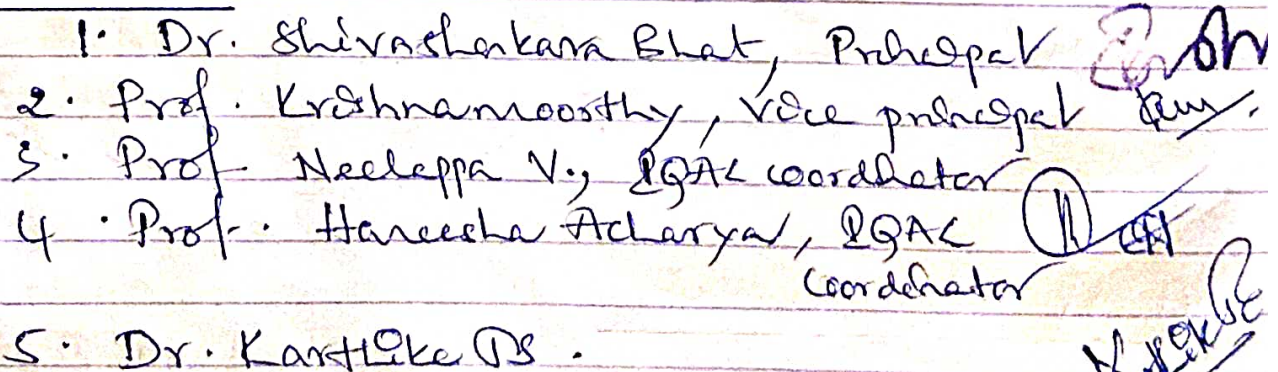 1. Dr. Shivashankara Bhat, Principal
2. Prof. Krishnamoorthy, Vice principal
3. Prof. Neelappa V., IQAC coordinator
4. Prof. Hareesha Acharya, IQAC
coordinator
5. Dr. Karthike PS.